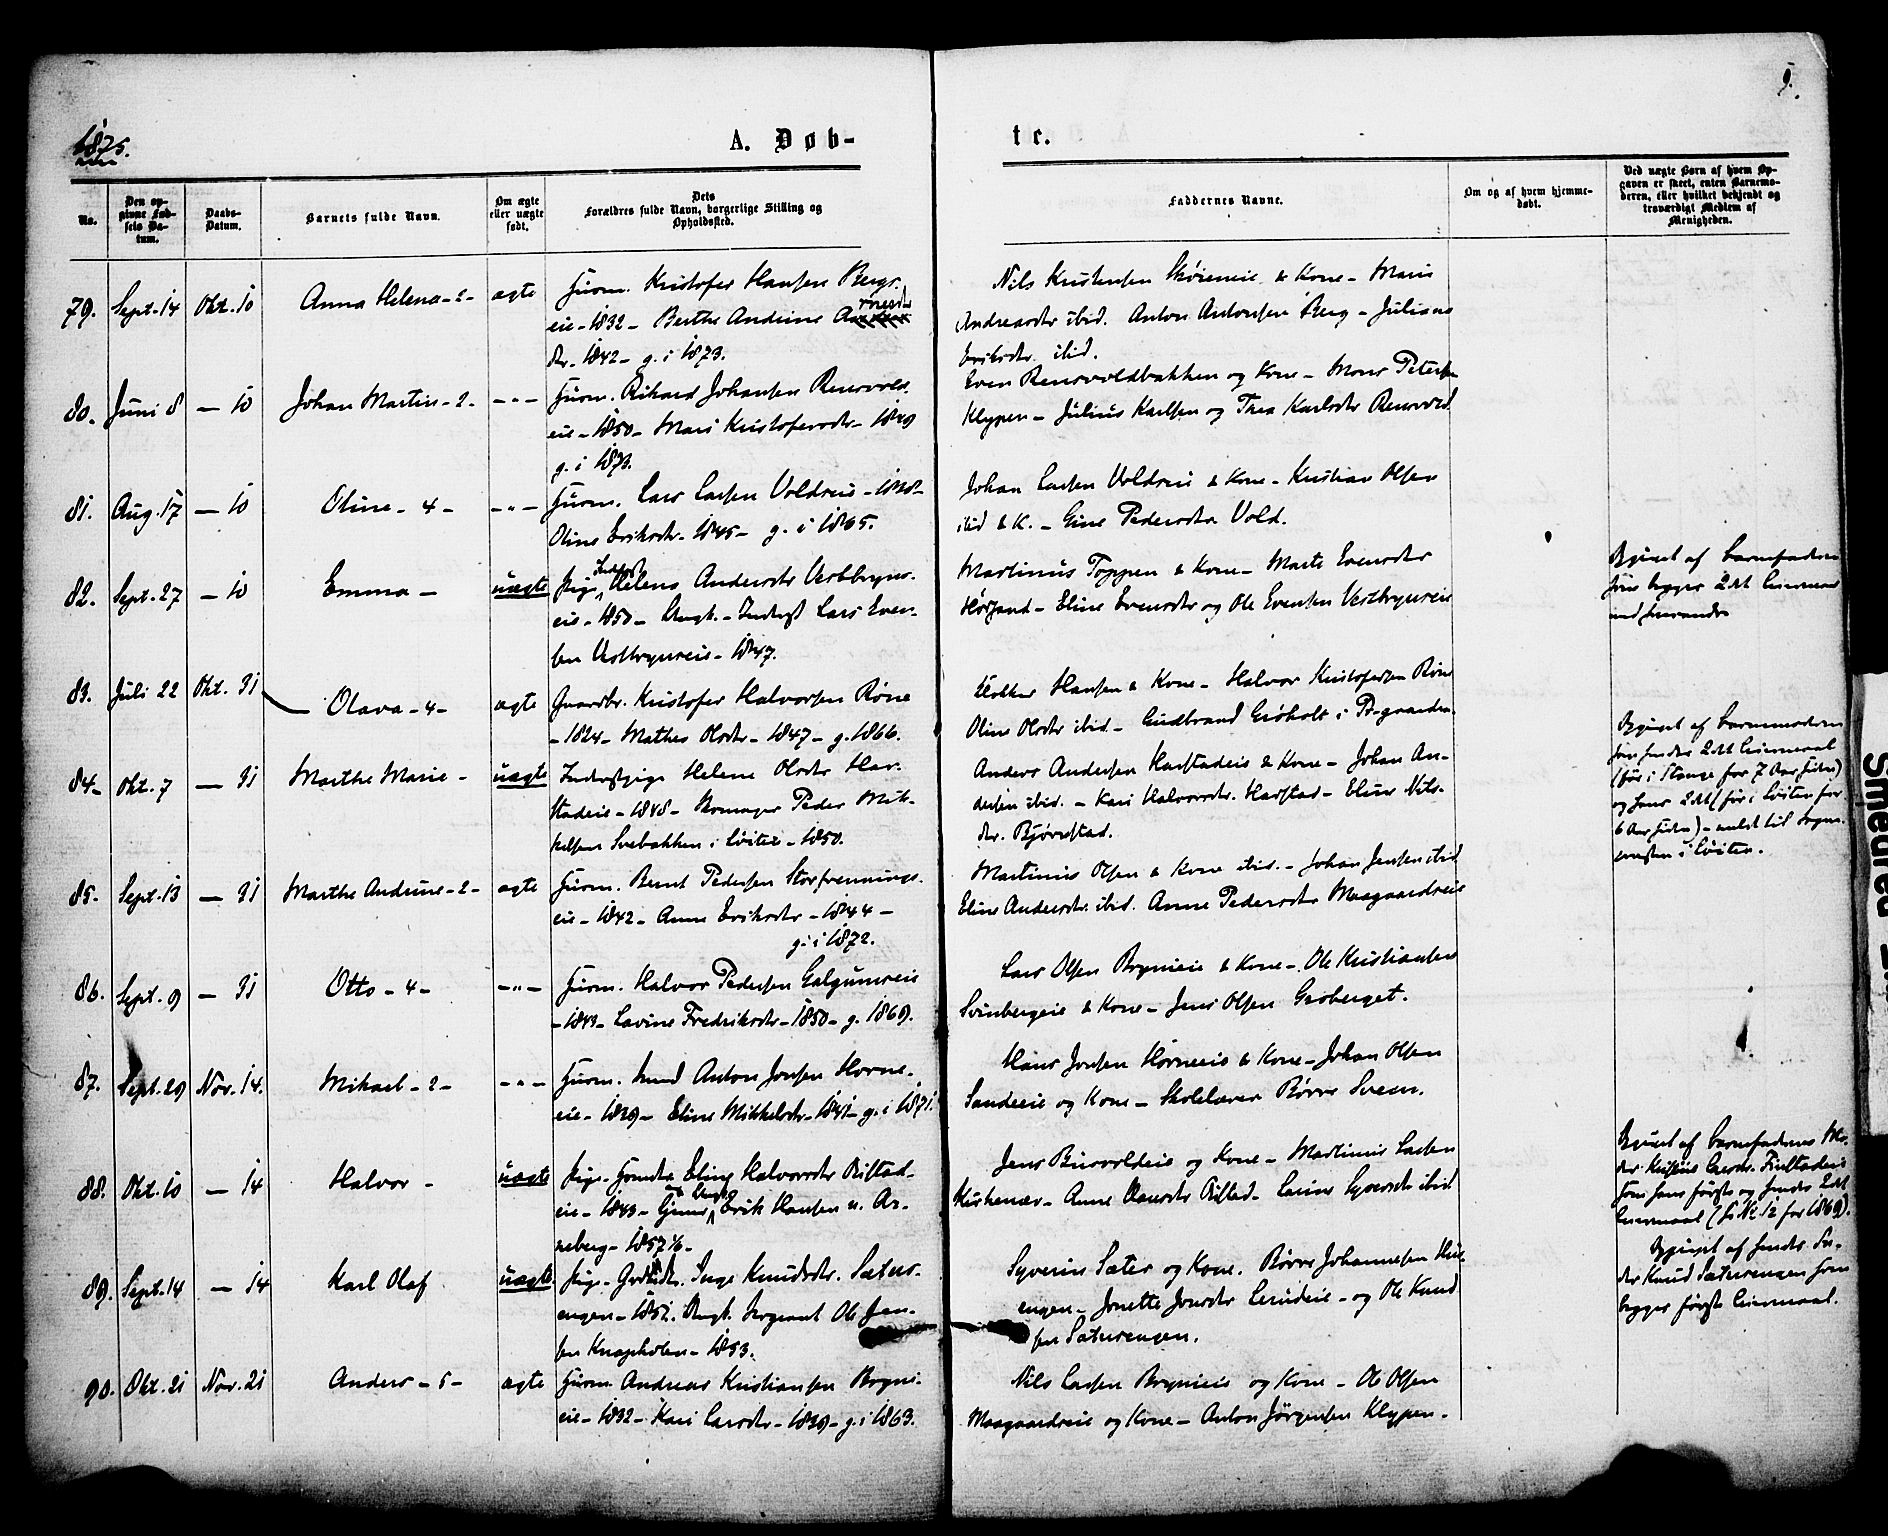 9.
1875.
A. Døb-
te.
No.
Den op-
givne Fød-
sels Da-
tum.
Daabs-
Datum.
Barnets fulde Navn.
Om ægte
eller uægte
født.
Dets
Forældres fulde Navn, borgerlige Stilling og
Opholdssted.
Faddernes Navne.
Om og af hvem hjemme-
døbt.
Ved uægte Børn af hvem Op-
gaven er skeet, enten Barnemo-
deren, eller hvilket bekjendt og
troværdigt Medlem af
Menigheden.
79. Sept. 14 Okt. 10 Anna Helena - 2 - ægte
Husm. Kristofer Hansen Bergs-
eie - 1832 - Berthe Andrine
dtr. - 1842 - g. i 1873.
Nils Kristensen & Kone - Maria
Andreasdtr ibid. Anton Antonsen Berg - Juliane
Eriksdtr. ibid.
80. Juni 8 — 10 Johan Martin - 2 - -"-
Husm. Rikard Johansen Rensvold-
eie - 1850 - Mari Kristofersdtr - 1849
g. i 1873.
Even Rensvoldbakken og Kone - Mons Petersen
Klypen - Julius Karlsen og Thea Karlsdtr Rensvold
81. Aug. 17 — 10 Oline - 4 - -"-
Husm. Lars Larsen Voldseie - 1838 -
Oline Eriksdtr. - 1845 - g. i 1865.
Johan Larsen Voldseie & Kone - Kristian Olsen
ibid & K. - Gine Pedersdtr Vold.
82. Sept. 27 — 10 Emma - uægte
Pige Helene Andersdtr Vestbryns-
eie - 1850 - Ungk. - Inderst Lars Even-
sen Vestbrynseie - 1847.
Martinus Toppen & Kone - Marte Evensdtr
- Eline Evensdtr og Ole Evensen Vestbrynseie
Opgivet af Barnefaderen
som begges 2det Leiermaal
med hverandre
83. Juli 22 Okt. 31 Olava - 4 - ægte
Gaardbr. Kristofer Halvorsen Røne
- 1824 - Mathea Olsdtr - 1847 - g. 1866.
Hansen & Kone - Halvor Kristofersen Røne
Oline Olsdtr ibid - Gudbrand Grøholt i
84. Okt. 7 — 31 Marthe Marie - uægte
Inderstpige Helene Olsdtr Har-
stadeie - 1848 - Peder Mik-
kelsen Svebakken i Løiten - 1850.
Anders Andersen Harstadeie & Kone - Johan An-
dersen ibid. - Kari Halvorsdtr. Harstad - Eline Nils-
dtr. Bjørnstad.
Opgivet af Barnemoderen
som hendes 2det Leiermaal
(før i Stange for 7 Aar siden)
og hans 2det (før i Løiten for
6 Aar siden) - meldt til Sogne-
presten i Løiten.
85. Sept. 13 — 31 Marthe Andrine - 2 - ægte
Husm. Bernt Pedersen Storfrennings-
eie - 1842 - Anne Eriksdtr - 1844 -
g. i 1872.
Martinus Olsen & Kone ibid. - Johan Jensen ibid
Eline Andersdtr. ibid. Anne Pedersdtr Maagaardseie
86. Sept. 9 — 31 Otto - 4 - -"-
Husm. Halvor Pedersen Galgumseie
- 1843 - Lavine Fredriksdtr - 1850 - g. 1869.
Lars Olsen Brynieie & Kone - Ole Kristiansen
Svinbergeie & Kone - Jens Olsen Groberget.
87. Sept. 29 Nov. 14. Mikael - 2 - -"-
Husm. Knud Anton Jonsen Horne-
eie - 1839 - Eline Mikkelsdtr - 1841 - g. i 1871.
Hans Jonsen Horneeie & Kone - Johan Olsen
Sandeeie og Kone - Skolelærer Børre Sveen.
88. Okt. 10 — 14 Halvor - uægte
Pige - Eline Halvorsdtr Riftad-
eie - 1843 - Erik Hansen
- 1857
Jens Busvoldeie og Kone - Martinus Larsen
Kirkenær - Anne Riftad - ibid
Opgivet af Barnefaderens Mo-
der
som hans første og hendes 2det
Leiermaal (s. No. 12 for 1869).
89. Sept. 14 — 14 Karl Olaf uægte.
Pige - Inge Knudsdtr. Sæter-
engen - 1852. Ungk. Sergeant Ole Jen-
sen Knapholen - 1853.
Syverin Sæter og Kone. Børre Johannesen
engen - Jonette Jonsdtr - og Ole Knud
sen Sæterengen.
Opgivet af hendes Fa-
der Knud Sæterengen som
begges første Leiermaal.
90. Okt. 21 Nov. 21 Anders - 5 - ægte
Husm. Andreas Kristiansen Bryni-
eie - 1832 - Kari Larsdtr - 1839 - g. i 1863.
Nils Larsen Brynieie og Kone - Ole Olsen
Maagaardseie og Kone - Anton Jørgensen Klypen.